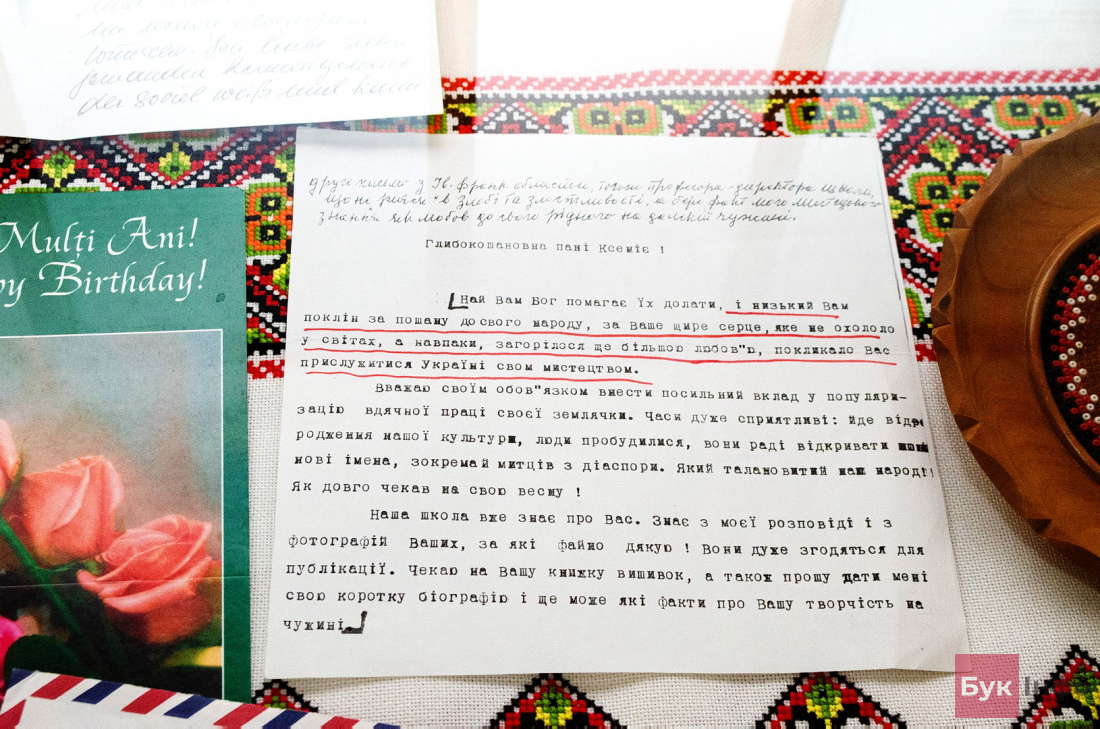 der Soviel weiß und kann
Mulți Ani!
py Birthday!
друге письмо з Ів. Франк. области, того ж професора-директора школи,
що не риєся в злобі та злостливості, а бере факт мого мистецького
знання як любов до свого рідного на далекій чужині.
Глибокошановна пані Ксеміє !
Най Вам Бог помагає їх долати, і низький Вам
поклін за пошану до свого народу, за Ваше щире серце, яке не охололо
у світах, а навпаки, загорілося ще більшою любов"ю, покликало Вас
прислужитися Україні своєм мистецтвом.
Вважаю своїм обов"язком внести посильний вклад у популяри-
зацію вдячної праці своєї землячки. Часи дуже сприятливі: йде від
родження нашої культури, люди пробудилися, вони раді відкривати
нові імена, зокрема й митців з діаспори. Який талановитий наш народ!
Як довго чекав на свою весну !
Наша школа вже знає про Вас. Знає з моєї розповіді і з
фотографій Ваших, за які файно дякую ! Вони дуже згодяться для
публікації. Чекаю на Вашу книжку вишивок, а також прошу дати мені
свою коротку біографію і ще може які факти про Вашу творчість на
чужині
Бук